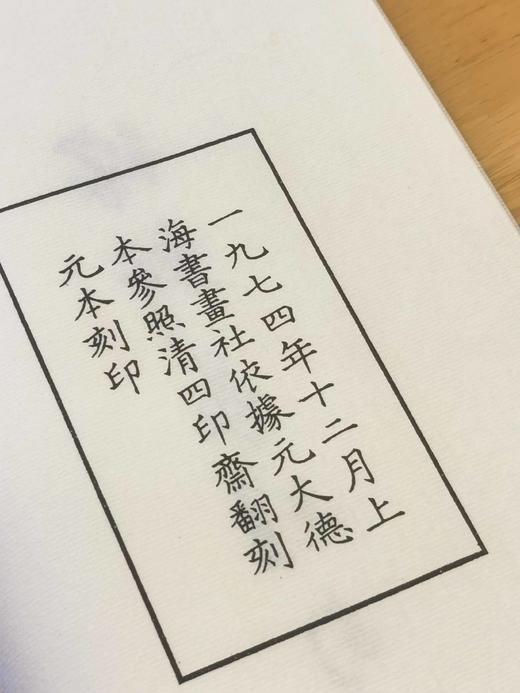 一九七四年十二月上
海書畫社依據元大德
本參照清四印齋翻刻
元本刻印